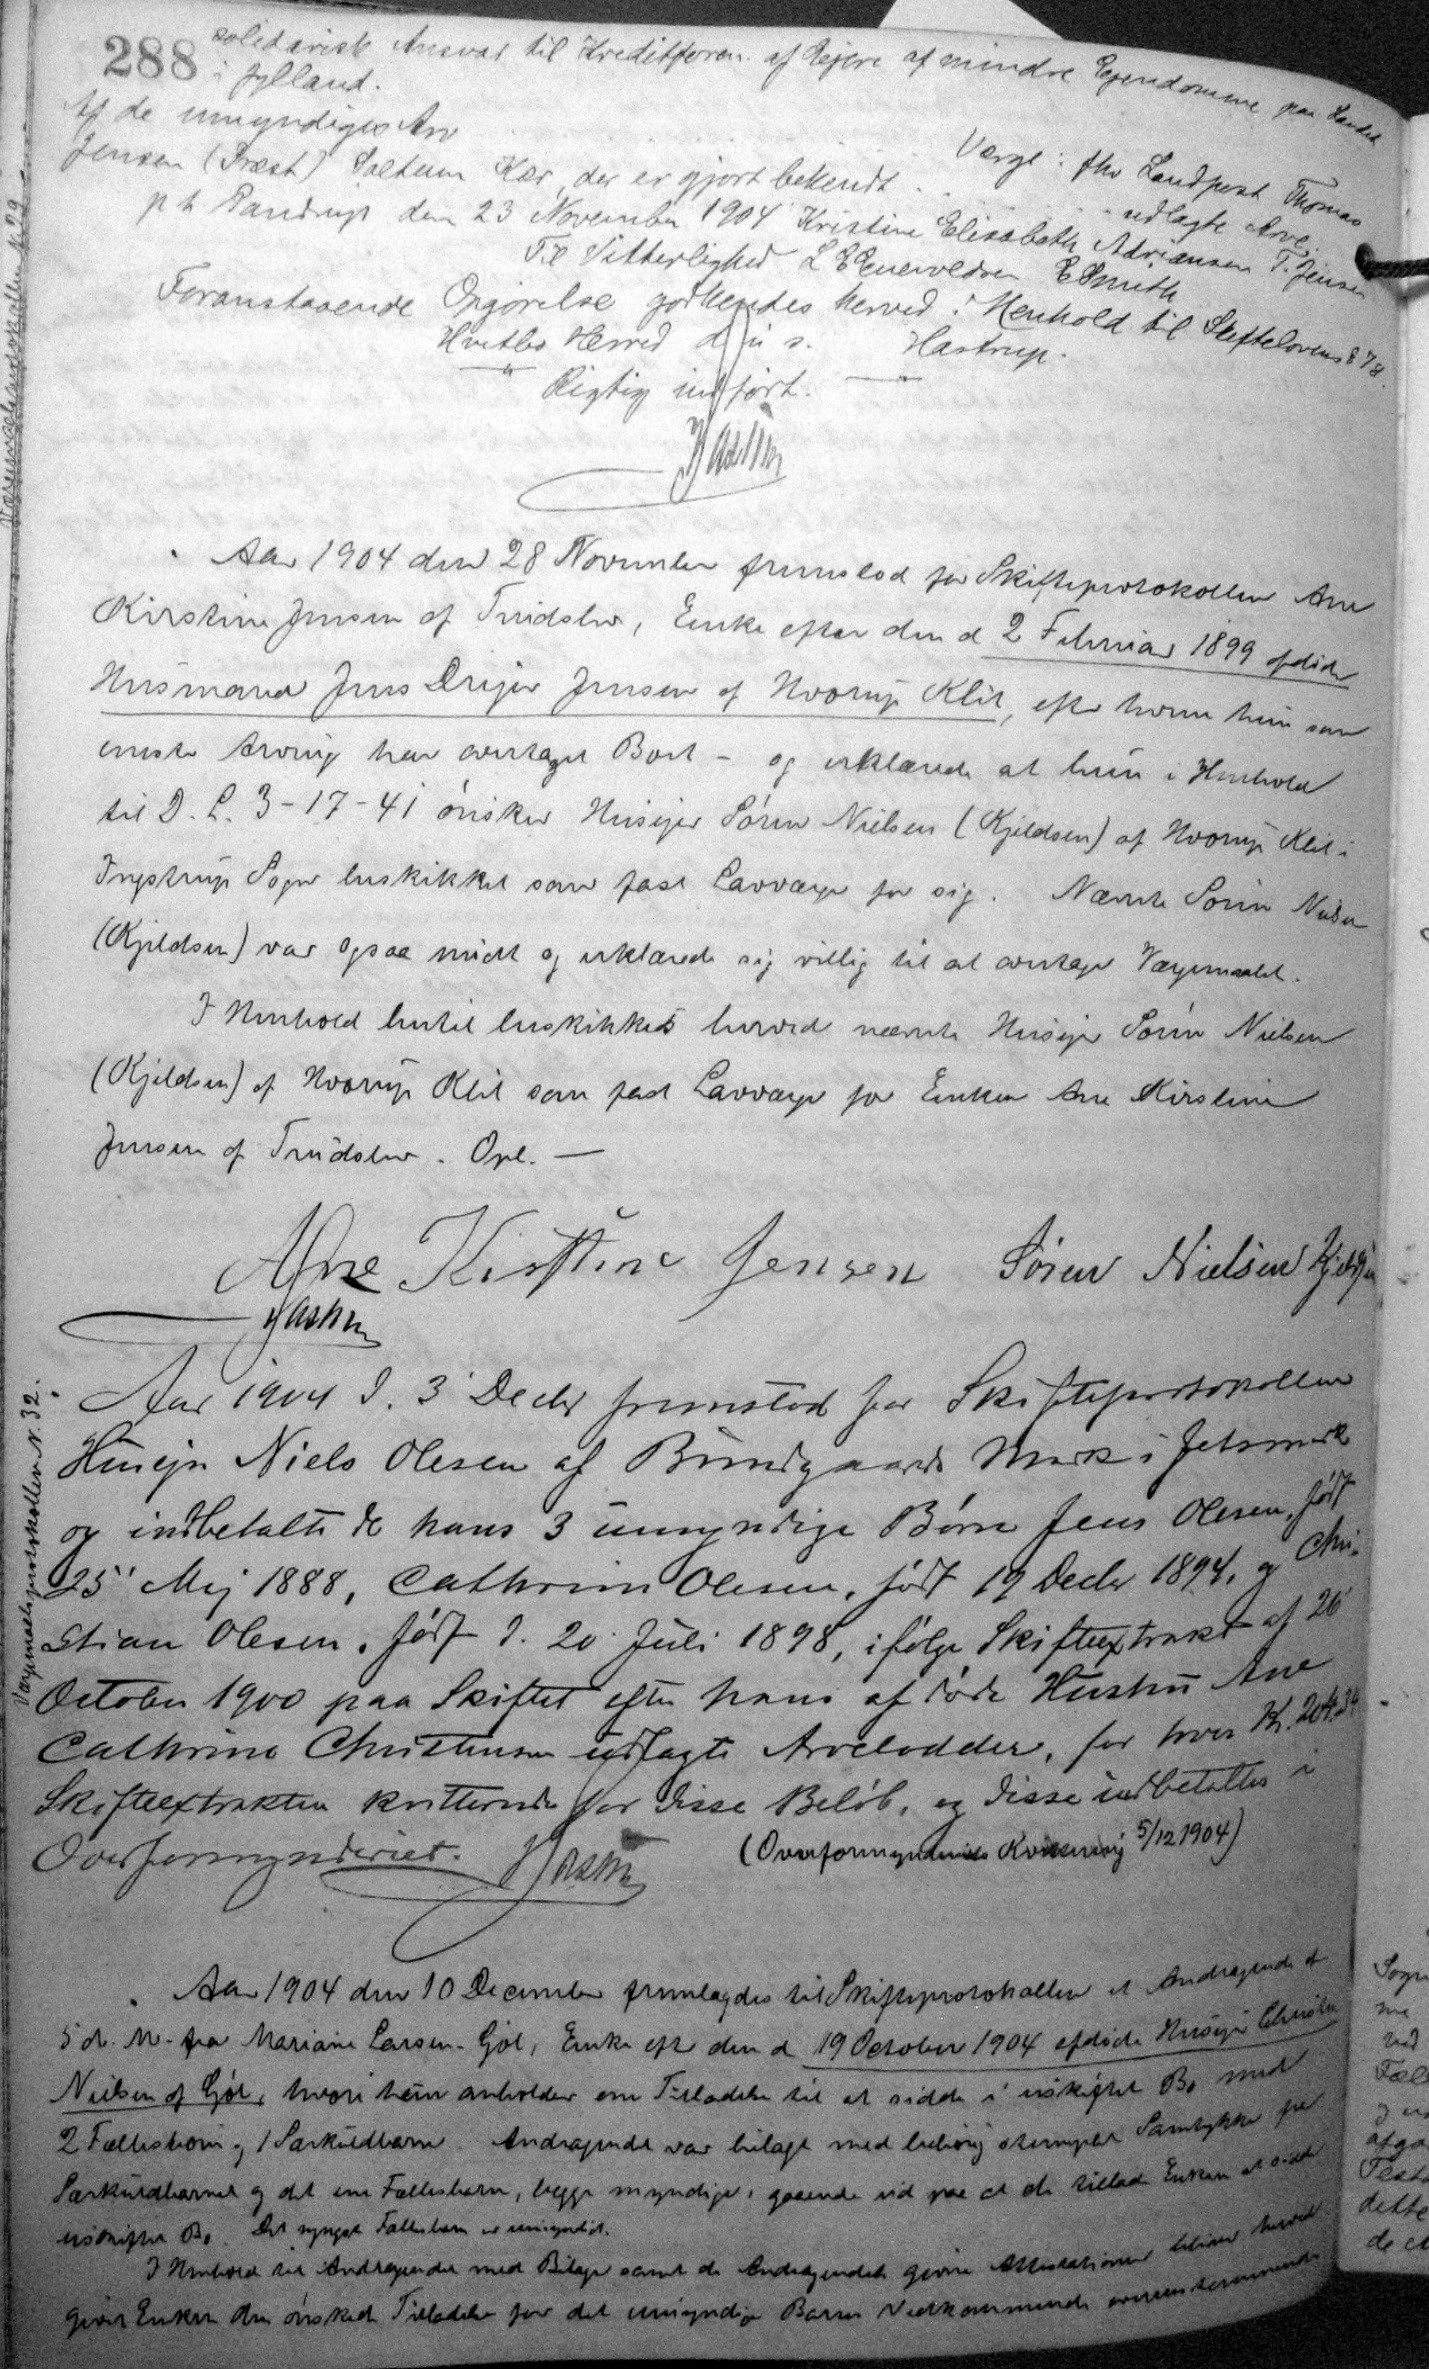 288 solidarisk Ansvar til Kreditforen. af Ejere af mindre Ejendomme paa Landet
i Jylland.
Af de umyndiges Arv
Værge: fhv Landpost Thomas
Jensen (Præst) Saltum Kær, der er gjort bekendt . . udlagte Arv.
p t Pandrup den 23 November 1904 Kristine Elisabeth Adriansen T. Jensen
Til Vitterlighed L E Enevoldsen E Smith
Foranstaaende Opgørelse godkendes herved i Henhold til Skiftelovens § 78.
Hvetbo Herred d u s. Hastrup.
Rigtig indført.
Hastrup
Aar 1904 den 28 November fremstod for Skifteprotokollen Ane
Kirstine Jensen af Trudslev, Enke efter den d 2 Februar 1899 afdøde
Husmand Jens Drejer Jensen af Hvorup Klit, efter hvem hun som
eneste Arving har overtaget Boet - og erklærede at hun i Henhold
til D. L. 3-17-41 ønsker Husejer Søren Nielsen (Kjeldsen) af Hvorup Klit i
Ingstrup Sogn beskikket som fast Lavværge for sig. Nævnte Søren Nielsen
(Kjeldsen) var ogsaa mødt og erklærede sig villig til at overtage Værgemaalet.
I Henhold hertil beskikkes herved nævnte Husejer Søren Nielsen
(Kjeldsen) af Hvorup Klit som fast Lavværge for Enken Ane Kirstine
Jensen af Trudslev. Opl. —
Ane Kirstine Jensen Søren Nielsen Kjeldsen
Hastrup
Værgemaalsprotokollen N. 32.
Aar 1904 d. 3' Decbr fremstod for Skifteprotokollen
Husejer Niels Olesen af Bundgaards Mark i Jetsmark
og indbetalte de hans 3 umyndige Børn Jens Olesen, født
25' Maj 1888, Cathrine Olesen, født 19 Decbr 1894, og Chri-
stian Olesen, født d. 20' Juli 1898, ifølge Skifteextrakt af 26'
October 1900 paa Skiftet efter hans afdøde Hustru Ane
Cathrine Christensen udlagte Arvelodder, for hver Kr. 204.34
Skifteextrakten kvitterede for disse Beløb, og disse indbetaltes i
Overformynderiet. Hastrup (Overformynderiets Kvittering 5/12 1904)
Aar 1904 den 10 December fremlagdes til Skifteprotokollen et Andragende af
5 d. M. fra Mariane Larsen - Gjøl, Enke eft den d 19 October 1904 afdøde Husejer Christen
Nielsen af Gjøl, hvori hun anholder om Tilladelse til at sidde i uskiftet Bo med
2 Fællesbørn og 1 Særkuldbarn. Andragendet var bilagt med behørig stemplet Samtykke fra
Særkuldbarnet og det ene Fællesbarn, begge myndige, gaaende ud paa at de tillade Enken at sidde
i uskiftet Bo. Det yngste Fællesbarn er umyndigt.
I Henhold til Andragendet med Bilage samt de Andragendet givne Attestationer bliver herved
givet Enken den ønskede Tilladelse for det umyndige Barns Vedkommende overensstemmende